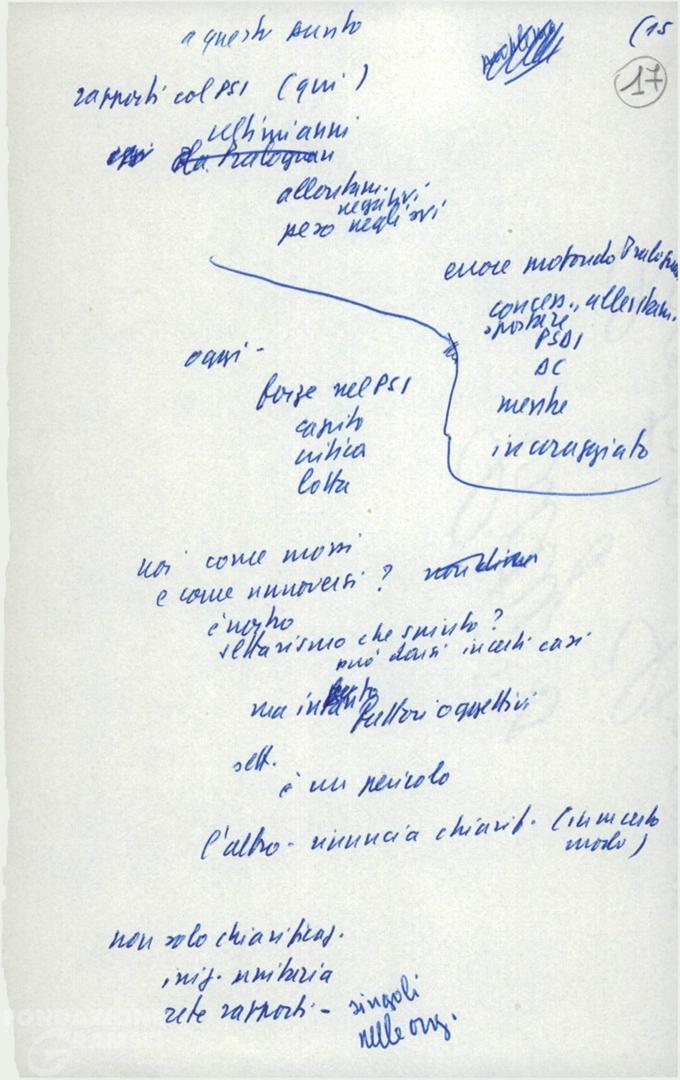 a questo punto
(15
17
rapporti col PSI (qui)
ultimi anni
da Pralognan
allontan.
negativi
peso negli avv
errore metodo Pralognan
concess., allontan.
spostare
PSDI
DC
mentre
incoraggiato
oggi -
forze nel PSI
capito
critica
lotta
noi come mossi
e come muoversi?
è nostro
settarismo che spinto?
può darsi in certi casi
ma intanto fattori oggettivi
sett.
è un pericolo
l'altro - rinuncia chiarif. (in un certo
modo)
non solo chiarificaz.
iniz. unitaria
rete rapporti - singoli
nelle org.